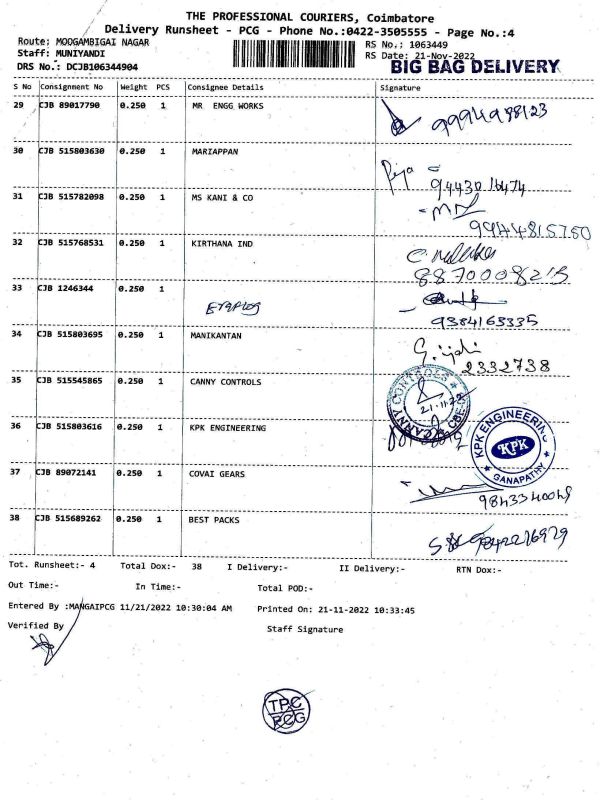 THE PROFESSIONAL COURIERS, Coimbatore
Delivery Runsheet - PCG - Phone No.:0422-3505555 - Page No.:4
Route: MOOGAMBIGAI NAGAR
RS No.: 1063449
Staff: MUNIYANDI
RS Date: 21-Nov-2022
DRS No.: DCJB106344904
BIG BAG DELIVERY
S No Consignment No Weight PCS Consignee Details Signature
29 CJB 89017790 0.250 1 MR ENGG WORKS
30 CJB 515803630 0.250 1 MARIAPPAN
31 CJB 515782098 0.250 1 MS KANI & CO
9944815750
32 CJB 515768531 0.250 1 KIRTHANA IND
8870008215
33 CJB 1246344 0.250 1
9384163335
34 CJB 515803695 0.250 1 MANIKANTAN
2332738
35 CJB 515545865 0.250 1 CANNY CONTROLS
CANNY CONTROLS CBE
21.11.22
36 CJB 515803616 0.250 1 KPK ENGINEERING
KPK ENGINEERING
KPK
GANAPATHY
37 CJB 89072141 0.250 1 COVAI GEARS
38 CJB 515689262 0.250 1 BEST PACKS
Tot. Runsheet:- 4 Total Dox:- 38 I Delivery:- II Delivery:- RTN Dox:-
Out Time:- In Time:- Total POD:-
Entered By :MANGAIPCG 11/21/2022 10:30:04 AM Printed On: 21-11-2022 10:33:45
Verified By Staff Signature
TPC
PCG